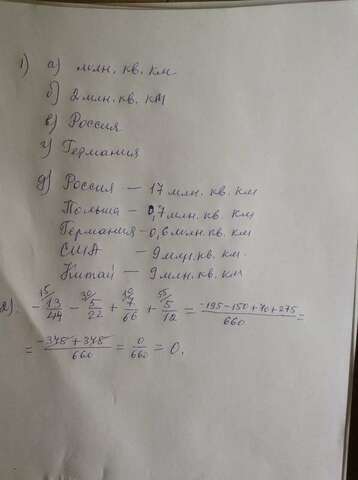 1) а) млн. кв. км
б) 2 млн. кв. км
в) Россия
г) Германия
д) Россия — 17 млн. кв. км
Польша — 0,7 млн. кв. км
Германия — 0,6 млн. кв. км
США — 9 млн. кв. км.
Китай — 9 млн. кв. км
2). -13/44 - 5/22 + 7/66 + 5/12 = -195-150+70+275/660 =
= -345+345/660 = 0/660 = 0.